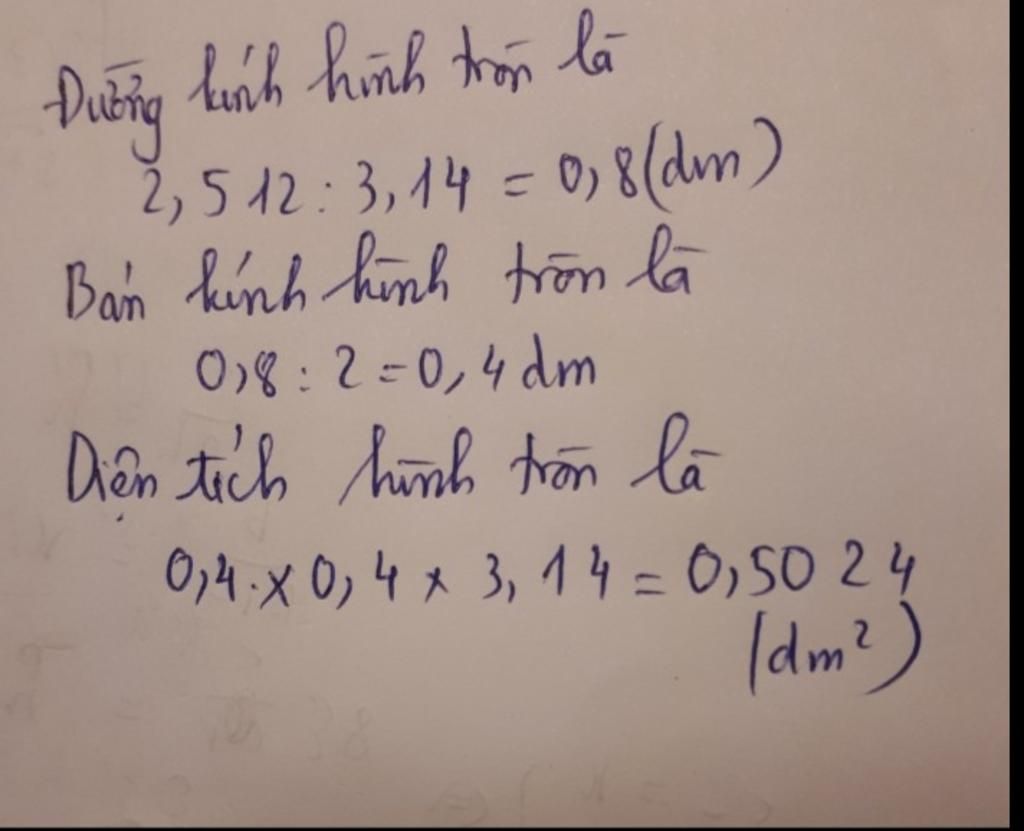 Đường kính hình tròn là
2,512 : 3,14 = 0,8 (dm)
Bán kính hình tròn là
0,8 : 2 = 0,4 dm
Diện tích hình tròn là
0,4 x 0,4 x 3,14 = 0,5024
(dm²)